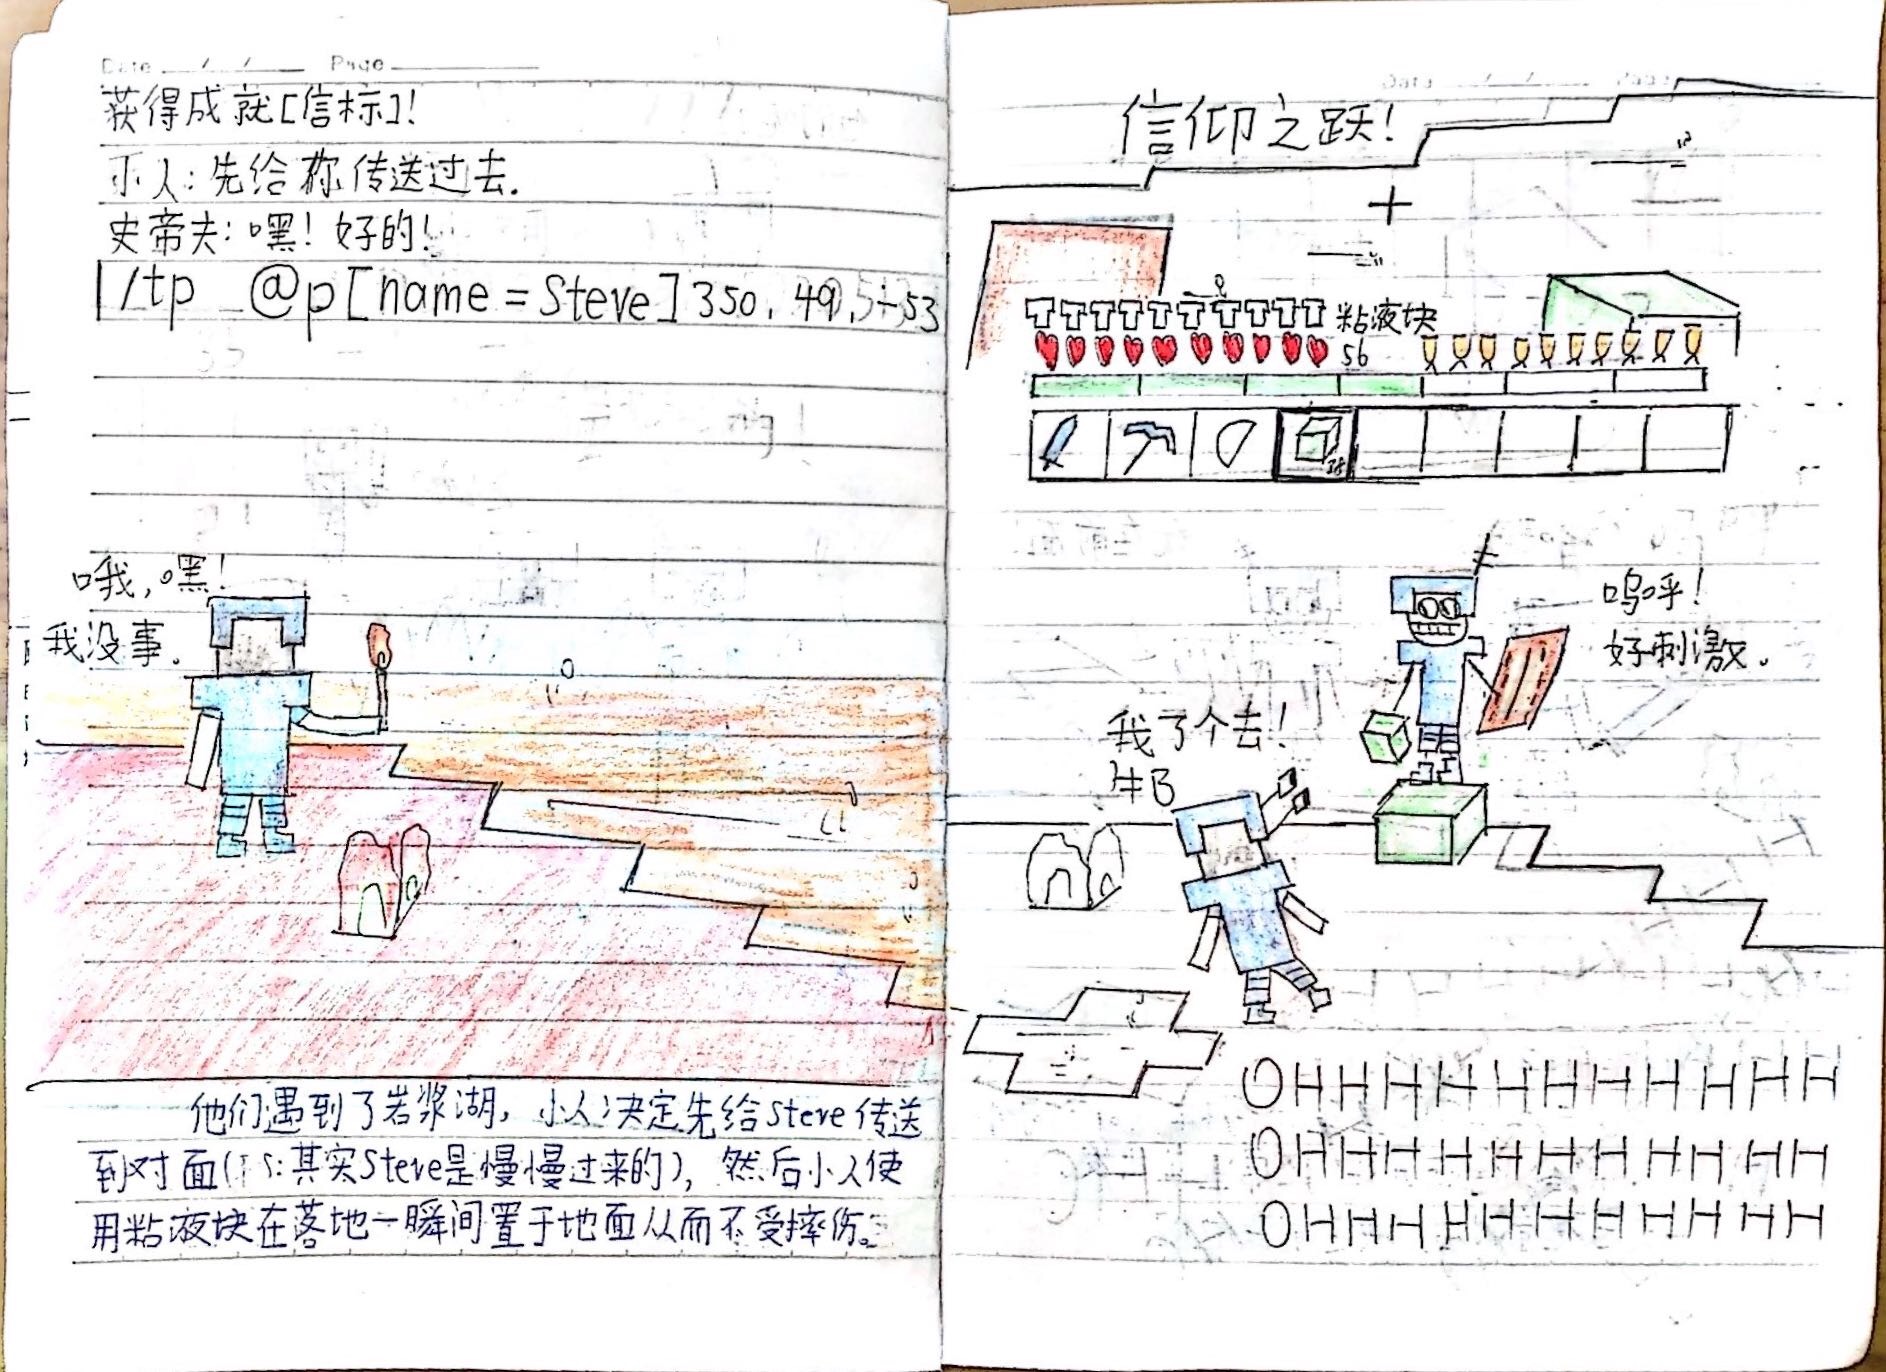 Date / / Page
获得成就[信标]!
小人:先给你传送过去.
史帝夫:嘿!好的!
/tp @p[name=Steve]350,49.5,-53
哦,嘿!
我没事.
他们遇到了岩浆湖,小人决定先给Steve传送
到对面(PS:其实Steve是慢慢过来的),然后小人使
用粘液块在落地一瞬间置于地面从而不受摔伤。
信仰之跃!
粘液块
56
呜呼!
好刺激.
我了个去!
牛B
OHHHHHHHHHHH
OHHHHHHHHHHH
OHHHHHHHHHHH